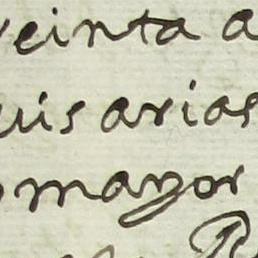 veinta a
uis arias
mayor